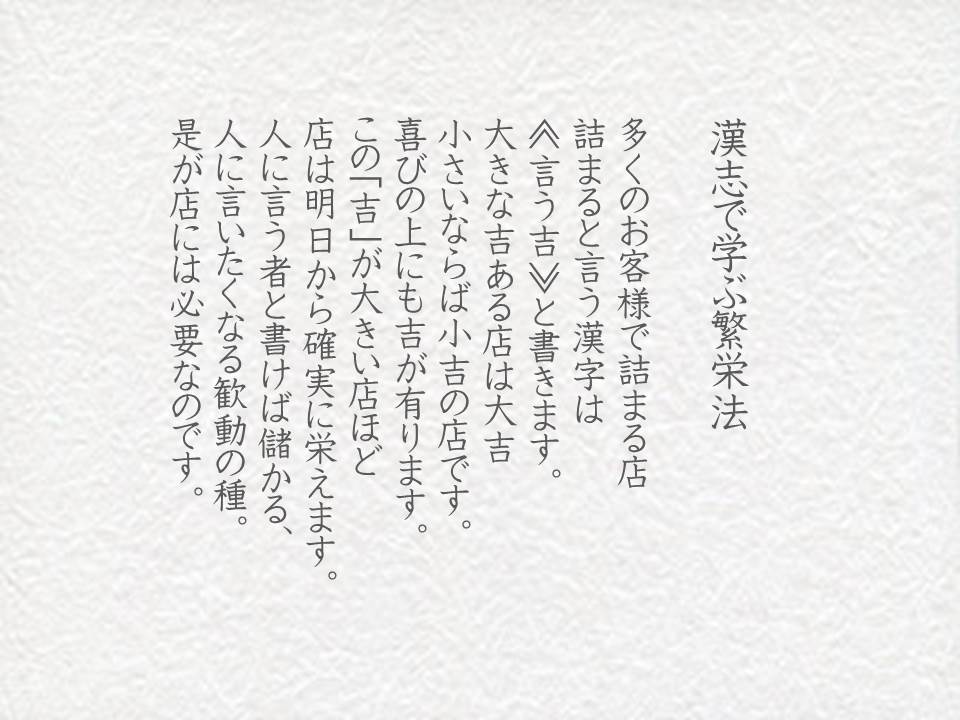 漢志で学ぶ繁栄法
多くのお客様で詰まる店
詰まると言う漢字は
≪言う吉≫と書きます。
大きな吉ある店は大吉
小さいならば小吉の店です。
喜びの上にも吉が有ります。
この「吉」が大きい店ほど
店は明日から確実に栄えます。
人に言う者と書けば儲かる、
人に言いたくなる歓動の種。
是が店には必要なのです。